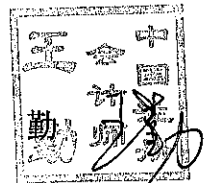 中国注册
会计师
王勤
勤